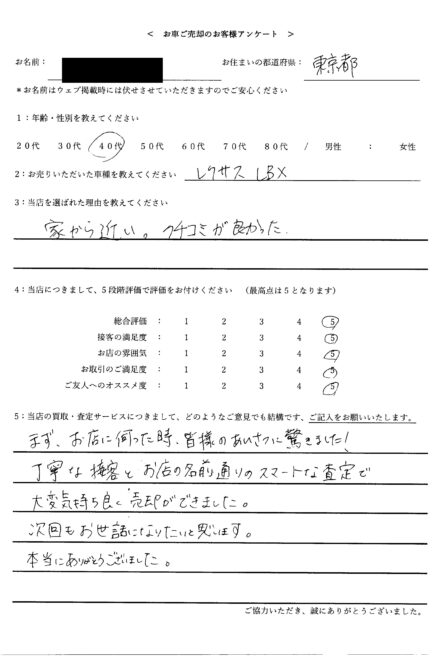 < お車ご売却のお客様アンケート >
お名前： お住まいの都道府県： 東京都
*お名前はウェブ掲載時には伏せさせていただきますのでご安心ください
1：年齢・性別を教えてください
20代 30代 40代 50代 60代 70代 80代 / 男性 : 女性
2：お売りいただいた車種を教えてください レクサス LBX
3：当店を選ばれた理由を教えてください
家から近い。クチコミが良かった.
4：当店につきまして、5段階評価で評価をお付けください （最高点は5となります）
総合評価 : 1 2 3 4 5
接客の満足度 : 1 2 3 4 5
お店の雰囲気 : 1 2 3 4 5
お取引のご満足度 : 1 2 3 4 5
ご友人へのオススメ度 : 1 2 3 4 5
5：当店の買取・査定サービスにつきまして、どのようなご意見でも結構です、ご記入をお願いいたします。
まず、お店に伺った時、皆様のあいさつに驚きました!
丁寧な接客とお店の名前通りのスマートな査定で
大変気持ち良く売却ができました。
次回もお世話になりたいと思います。
本当にありがとうございました。
ご協力いただき、誠にありがとうございました。